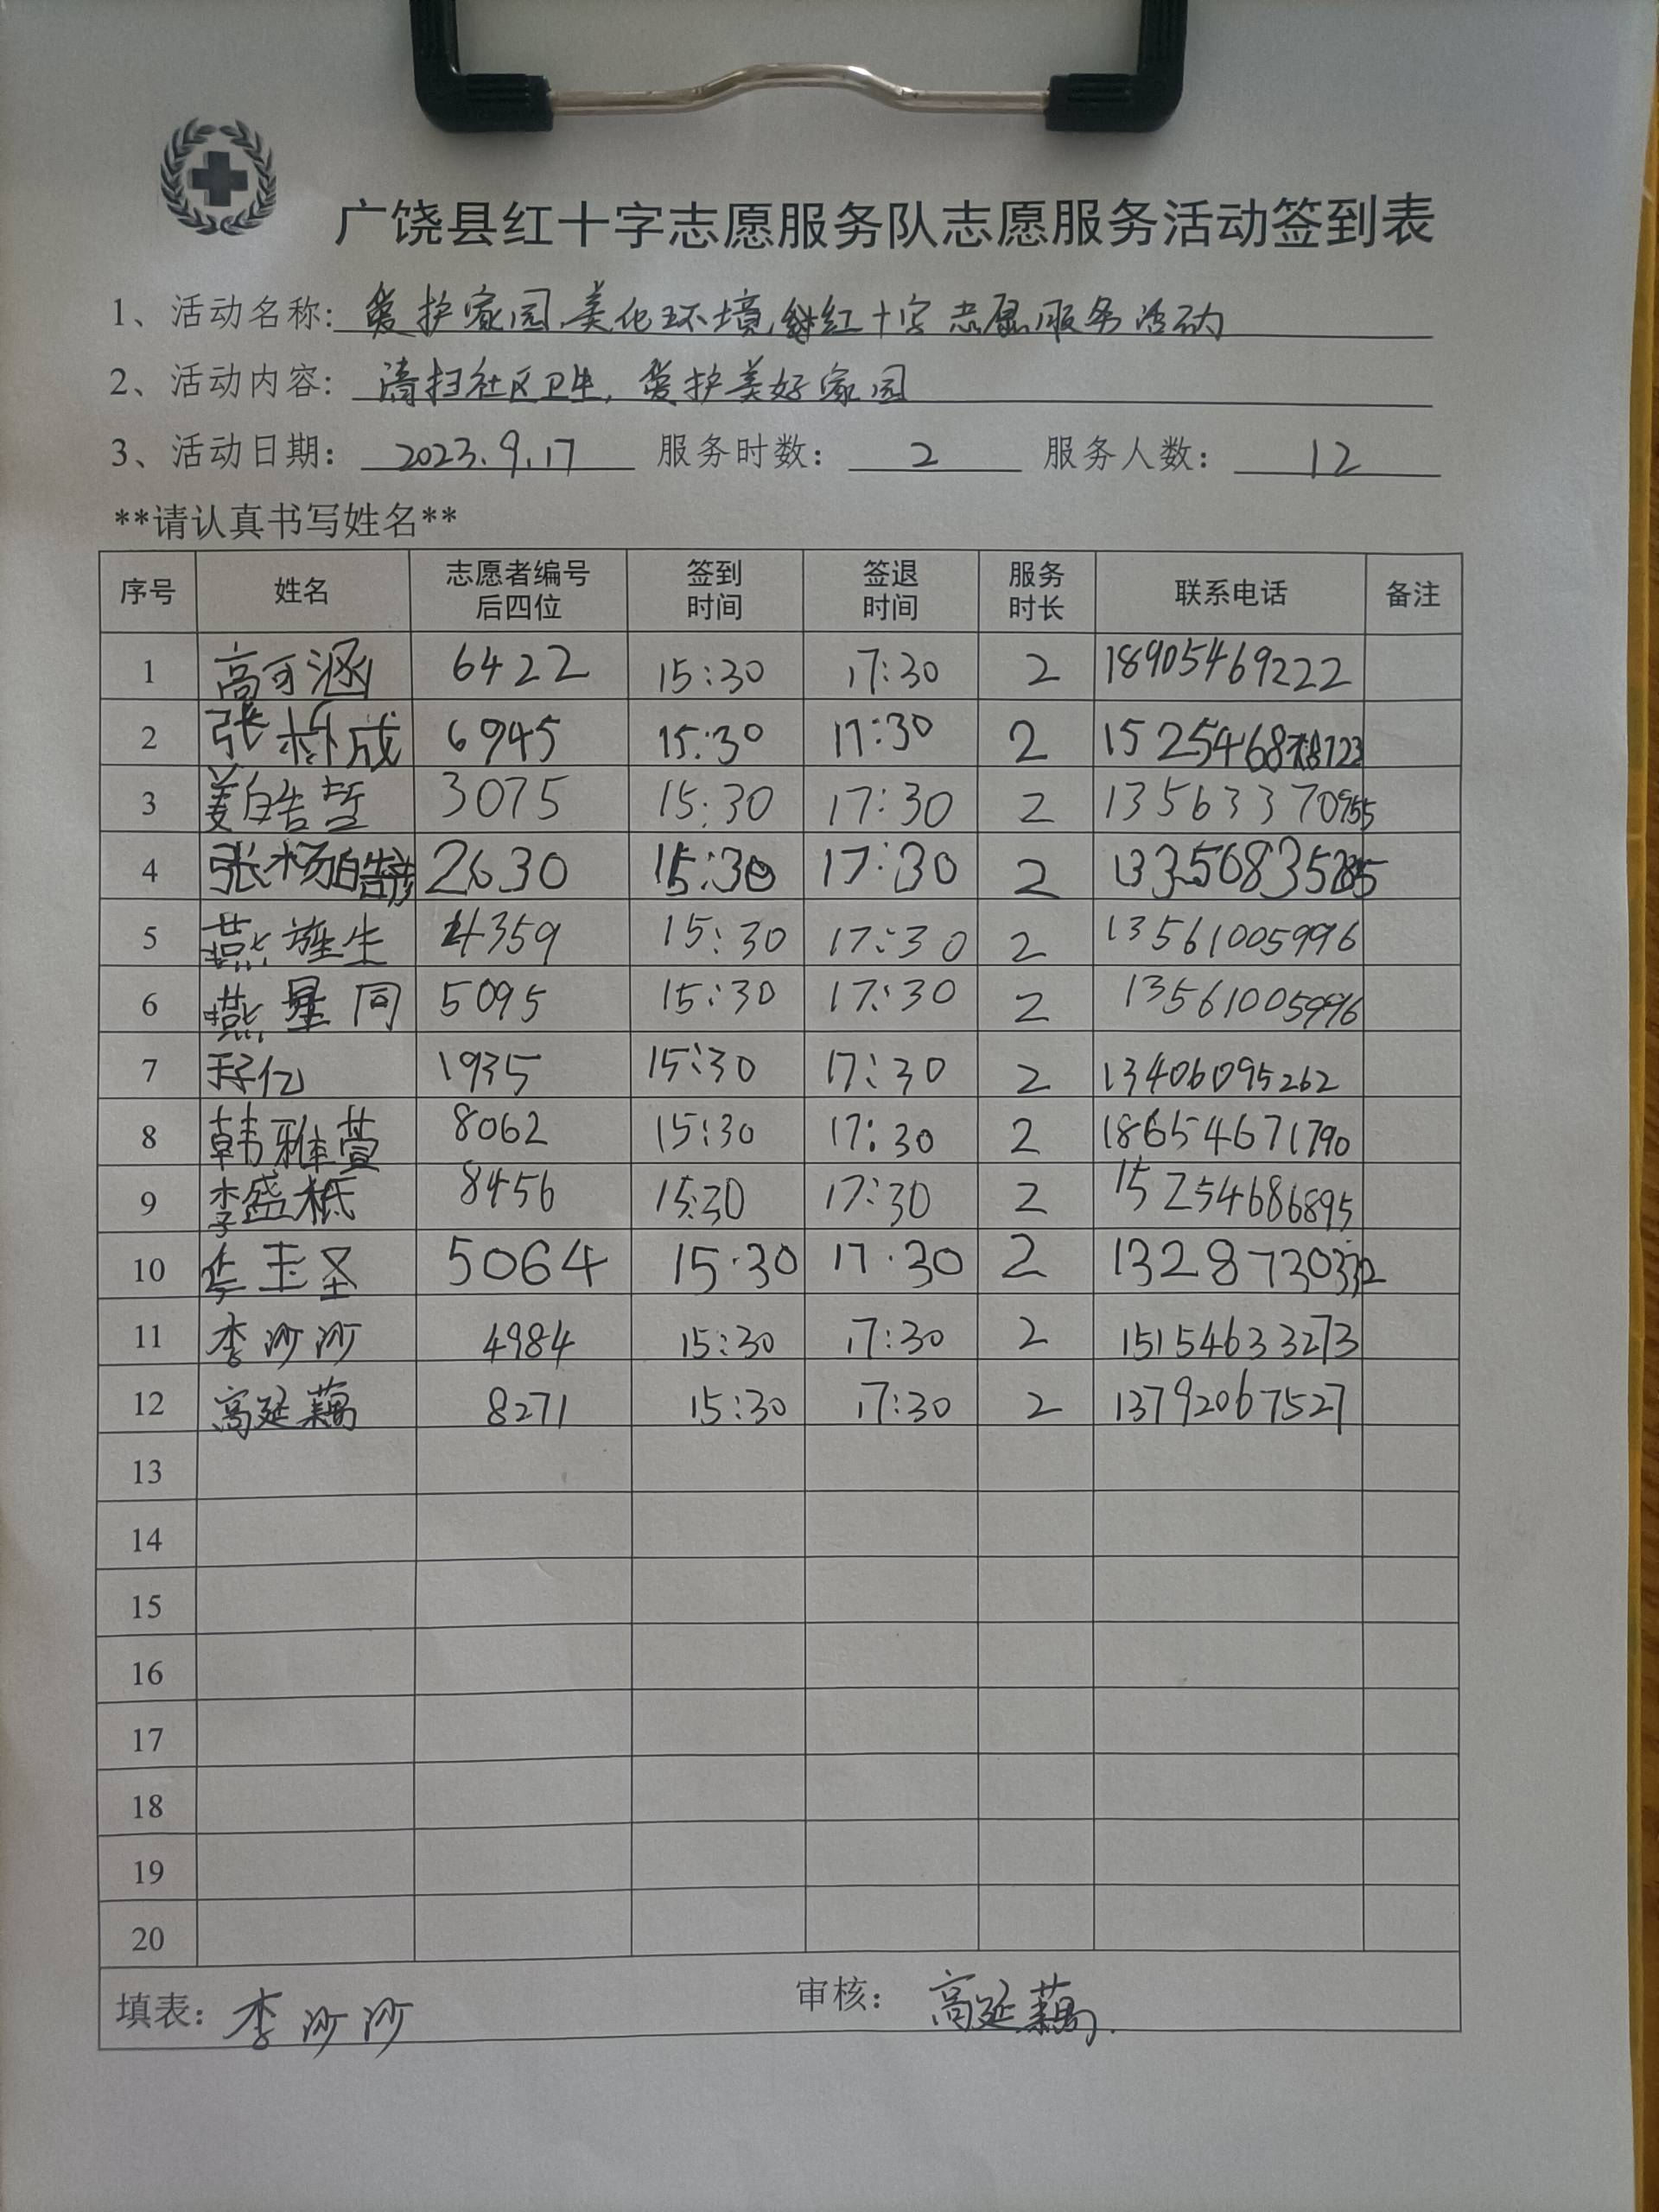 广饶县红十字志愿服务队志愿服务活动签到表
1、活动名称: 爱护家园,美化环境,红十字志愿服务活动
2、活动内容: 清扫社区卫生,爱护美好家园
3、活动日期: 2023.9.17 服务时数: 2 服务人数: 12
**请认真书写姓名**
序号 姓名 志愿者编号后四位 签到时间 签退时间 服务时长 联系电话 备注
1 高可涵 6422 15:30 17:30 2 18905469222
2 张树成 6945 15:30 17:30 2
3 姜皓哲 3075 15:30 17:30 2 13563370955
4 张杨皓 2630 15:30 17:30 2
5 燕旌生 4359 15:30 17:30 2 13561005996
6 燕星同 5095 15:30 17:30 2 13561005996
7 1935 15:30 17:30 2 13406095262
8 韩雅萱 8062 15:30 17:30 2 18654671790
9 李盛 8456 15:30 17:30 2 15254686895
10 玉圣 5064 15:30 17:30 2
11 李沙沙 4984 15:30 17:30 2 15154633273
12 高延藕 8271 15:30 17:30 2 13792067527
13
14
15
16
17
18
19
20
填表: 李沙沙 审核: 高延藕